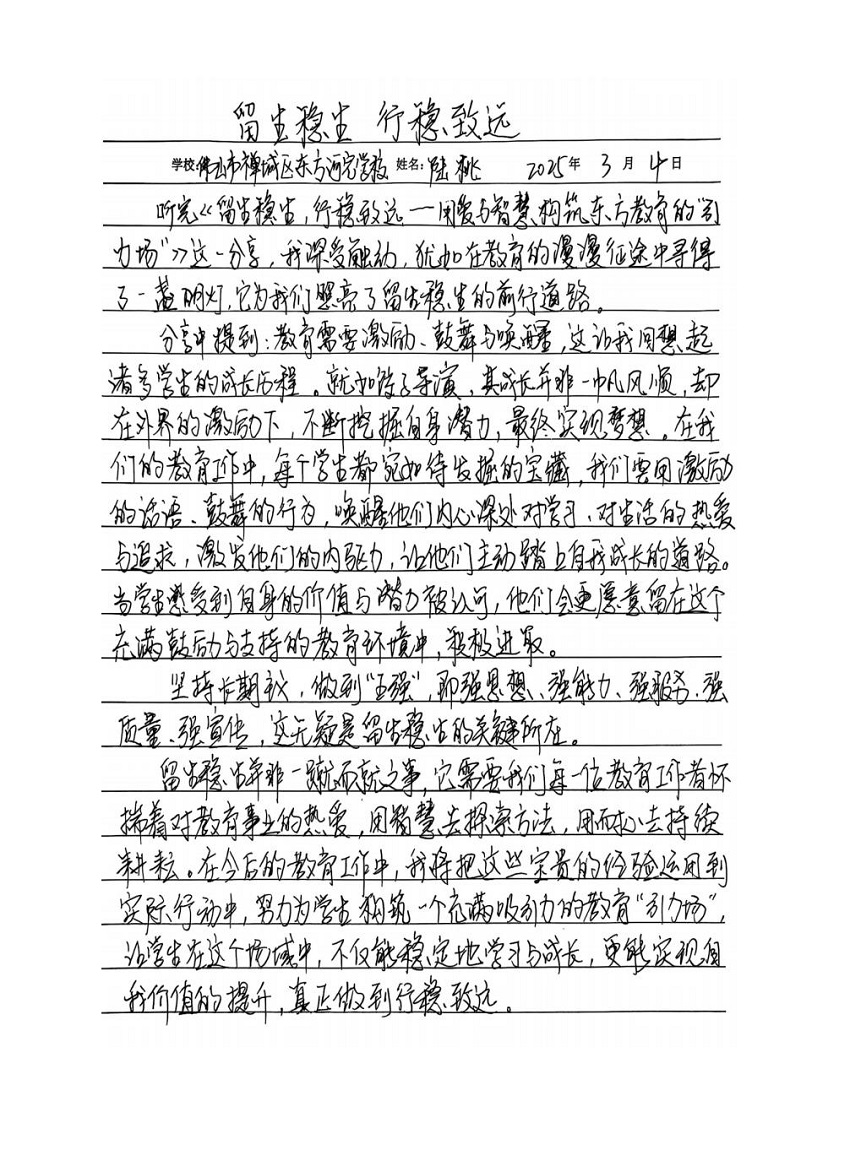 留生稳生 行稳致远
学校:佛山市禅城区东方村完学校 姓名:陆桃 2025年3月4日
听完《留生稳生,行稳致远——用爱与智慧构筑东方教育的"引
力场"》这一分享,我深受触动,犹如在教育的漫漫征途中寻得
了一盏明灯,它为我们照亮了留生稳生的前行道路。
分享中提到:教育需要激励、鼓舞与唤醒,这让我回想起
诸多学生的成长历程。就如饺子导演,其成长并非一帆风顺,却
在外界的激励下,不断挖掘自身潜力,最终实现梦想。在我
们的教育工作中,每个学生都宛如待发掘的宝藏,我们要用激励
的话语、鼓舞的行为,唤醒他们内心深处对学习、对生活的热爱
与追求,激发他们的内驱力,让他们主动踏上自我成长的道路。
当学生感受到自身的价值与潜力被认可,他们会更愿意留在这个
充满鼓励与支持的教育环境中,积极进取。
坚持长期主义,做到"五强",即强思想、强能力、强服务、强
质量、强宣传,这无疑是留生稳生的关键所在。
留生稳生并非一蹴而就之事,它需要我们每一位教育工作者怀
揣着对教育事业的热爱,用智慧去探索方法,用耐心去持续
耕耘。在今后的教育工作中,我将把这些宝贵的经验运用到
实际行动中,努力为学生构筑一个充满吸引力的教育"引力场",
让学生在这个场域中,不仅能稳定地学习与成长,更能实现自
我价值的提升,真正做到行稳致远。